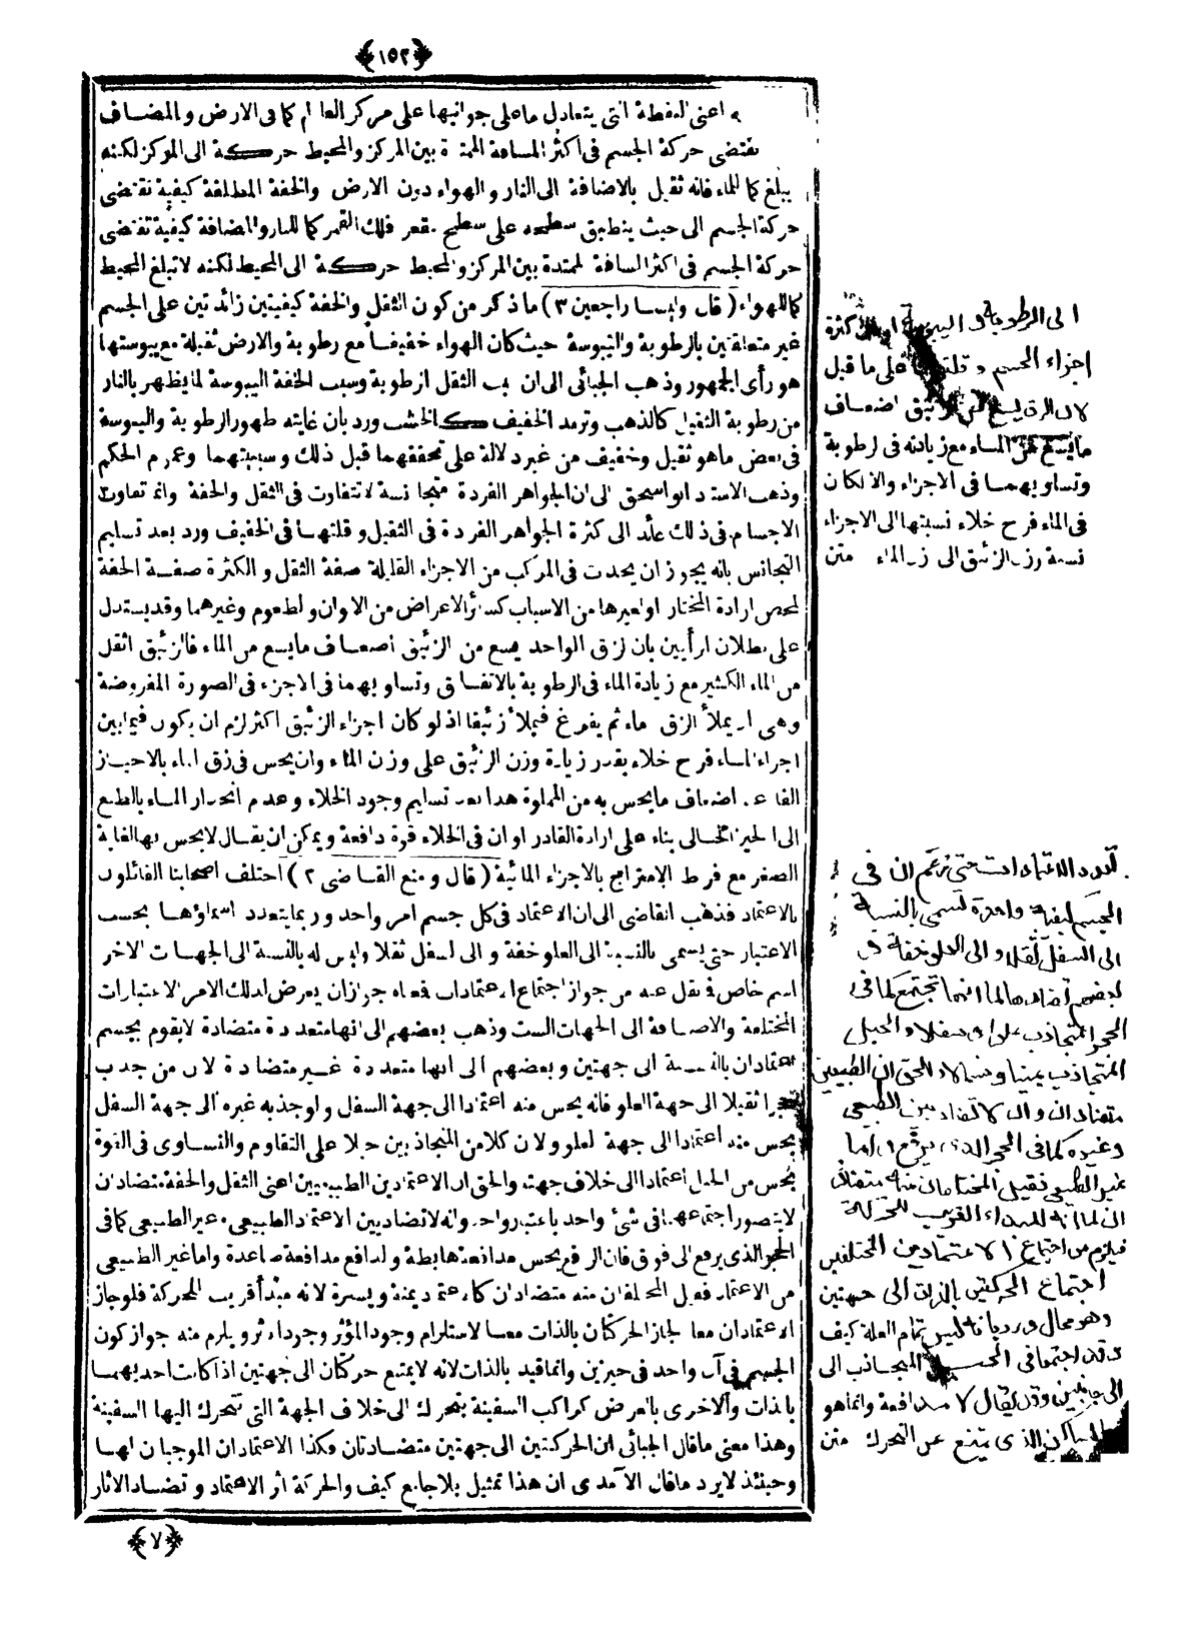 ﴿١٥٢﴾
اعنى النقطة التى يتعادل ما على جوانبها على مركز العالم كما فى الارض والمضاف
يقتضى حركة الجسم فى اكثر المسافة الممتدة بين المركز والمحيط حركة الى المركز لكنه
يبلغ كما للماء فانه ثقيل بالاضافة الى النار والهواء دون الارض والخفة المطلقة كيفية تقتضى
حركة الجسم الى حيث ينطبق سطحه على سطح مقعر فلك القمر كما للنار والمضافة كيفية تقتضى
حركة الجسم فى اكثر المسافة الممتدة بين المركز والمحيط حركة الى المحيط لكنه لا تبلغ المحيط
كما للهواء ( قال وليسا راجعين ٣ ) ما ذكر من كون الثقل والخفة كيفيتين زائدتين على الجسم
غير متعلقتين بالرطوبة واليبوسة حيث كان الهواء خفيفا مع رطوبة والارض ثقيلة مع يبوستها
هو رأى الجمهور وذهب الجبائى الى ان سبب الثقل الرطوبة وسبب الخفة اليبوسة لما يظهر بالنار
من رطوبة الثقيل كالذهب وترمد الخفيف كالخشب ورد بان غايته ظهور الرطوبة واليبوسة
فى بعض ما هو ثقيل وخفيف من غير دلالة على تحققهما قبل ذلك وسببيتهما وعموم الحكم
وذهب الاستاد ابو اسحق الى ان الجواهر الفردة متجانسة لا تتفاوت فى الثقل والخفة وانما تفاوت
الاجسام فى ذلك عائد الى كثرة الجواهر الفردة فى الثقيل وقلتها فى الخفيف ورد بعد تسليم
التجانس بانه يجوز ان يحدث فى المركب من الاجزاء القليلة صفة الثقل والكثرة صفة الخفة
لمحض ارادة المختار او لغيرها من الاسباب كسائر الاعراض من الالوان والطعوم وغيرهما وقد يستدل
على بطلان الرأيين بان الزق الواحد يسع من الزئبق اضعاف ما يسع من الماء فالزئبق اثقل
من الماء الكثير مع زيادة الماء فى الرطوبة بالاتفاق وتساويهما فى الاجزاء فى الصورة المفروضة
وهى ان يملأ الزق ماء ثم يفرغ فيملأ زئبقا اذ لو كان اجزاء الزئبق اكثر لزم ان يكون فيما بين
اجزاء الماء فرج خلاء بقدر زيادة وزن الزئبق على وزن الماء وان يحس فى زق الماء بالاحياز
الفارغة اضعاف ما يحس به من المملوة هذا بعد تسليم وجود الخلاء وعدم انحدار الماء بالطبع
الى الحيز الخالى بناء على ارادة القادر او ان فى الخلاء قوة دافعة ويمكن ان يقال لا يحس بها لغاية
الصغر مع فرط الامتزاج بالاجزاء المائية ( قال ومنع القاضى ٢ ) اختلف اصحابنا القائلون
بالاعتماد فذهب القاضى الى ان الاعتماد فى كل جسم امر واحد وربما يتعدد اسماؤها بحسب
الاعتبار حتى يسمى بالنسبة الى العلو خفة والى السفل ثقلا وليس له بالنسبة الى الجهات الاخر
اسم خاص فما نقل عنه من جواز اجتماع الاعتمادات فمعناه جواز ان يعرض لذلك الامر الاعتبارات
المختلفة والاضافة الى الجهات الست وذهب بعضهم الى انها متعددة متضادة لا يقوم بجسم
اعتمادان بالنسبة الى جهتين وبعضهم الى انها متعددة غير متضادة لان من جذب
حجرا ثقيلا الى جهة العلو فانه يحس منه اعتمادا الى جهة السفل ولو جذبه غيره الى جهة السفل
يحس منه اعتمادا الى جهة العلو ولان كلا من المتجاذبين حبلا على التقاوم والتساوى فى القوة
يحس من الحبل اعتمادا الى خلاف جهته والحق ان الاعتمادين الطبيعيين اعنى الثقل والخفة متضادان
لا يتصور اجتماعهما فى شئ واحد باعتبار واحد وانه لا تضاد بين الاعتماد الطبيعى وغير الطبيعى كما فى
الحجر الذى يرفع الى فوق فان الرافع يحس مدافعة هابطة والدافع مدافعة صاعدة واما غير الطبيعى
من الاعتماد فقيل المختلفان منه متضادان كالاعتماد يمنة ويسرة لانه مبدأ قريب للحركة فلو جاز
الاعتمادان معا لجاز الحركتان بالذات معا لاستلزام وجود المؤثر وجود اثر ويلزم منه جواز كون
الجسم فى آن واحد فى حيزين وانما قيد بالذات لانه لا يمتنع حركتان الى جهتين اذا كانت احديهما
بالذات والاخرى بالعرض كراكب السفينة يتحرك الى خلاف الجهة التى تتحرك اليها السفينة
وهذا معنى ما قال الجبائى ان الحركتين الى جهتين متضادتان فكذا الاعتمادان الموجبان لهما
وحينئذ لا يرد ما قال الآمدى ان هذا تمثيل بلا جامع كيف والحركة اثر الاعتماد وتضاد الاثار
الى الرطوبة و اليبوسة او الى كثرة
اجزاء الجسم و قلتها على ما قيل
لان الزق يسع من الزئبق اضعاف
ما يسع من الماء مع زيادته فى الرطوبة
وتساويهما فى الاجزاء والا لكان
فى الماء فرج خلاء نسبتها الى الاجزاء
نسبة وزن الزئبق الى وزن الماء متن
تعدد الاعتمادات حتى زعم ان فى
الجسم كيفية واحدة تسمى بالنسبة
الى السفل ثقلا و الى العلو خفة و
بعضهم تضادها لما انها تجتمع كما فى
الحجر المتجاذب علوا و سفلا والحبل
المتجاذب يمينا وشمالا والحق ان الطبيعيين
متضادان وان لا تضاد بين الطبيعى
وغيره كما فى الحجر الذى يرفع واما
غير الطبيعى فقيل المختلفان منه متضادان
لما انه المبداء القريب للحركة
فيلزم من اجتماع الاعتمادين المختلفين
اجتماع الحركتين بالذات الى جهتين
وهو محال ورد بانه ليس تمام العلة كيف
وقد اجتمعا فى الحبل المتجاذب الى
الى جانبين وقد يقال لا مدافعة وانما هو
كالساكن الذى يمتنع عن التحرك متن
﴿٧﴾